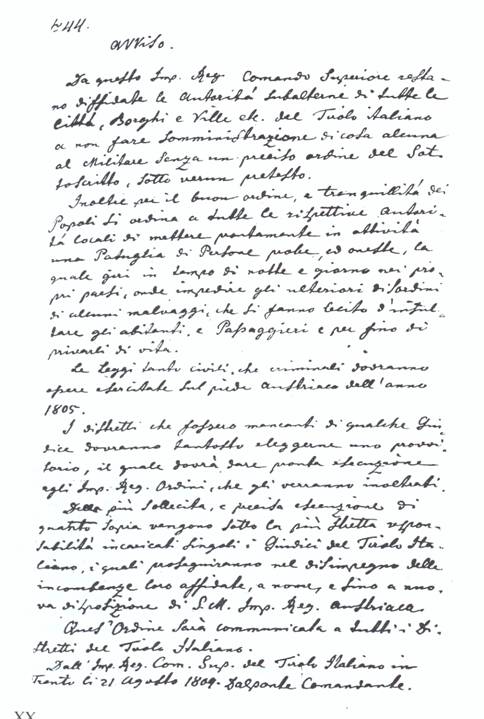 N44.
avviso.
Da questo Imp. Reg. Comando Superiore resta-
no diffidate le Autoritá Subalterne di tutte le
Città, Borghi e Ville etc. del Tirolo Italiano
a non fare Somministrazione di cosa alcuna
al Militare Senza un preciso ordine del Sot-
toscritto, sotto verun pretesto.
Inoltre per il buon ordine, e tranquillitá dei
Popoli Si ordina a tutte le rispettive autori-
tá locali di mettere prontamente in attivitá
una Patuglia di Persone probe, ed oneste, la
quale giri in tempo di notte e giorno nei pro-
pri paesi, onde impedire gli ulteriori disordini
di alcuni malvaggi, che si fanno lecito d'insul-
tare gli abitanti, e Passaggieri e per fino di
privarli di vita.
Le Leggi tanto civili, che criminali dovranno
essere esercitate sul piede austriaco dell'anno
1805.
I distretti che fossero mancanti di qualche Giu-
dice dovranno tantosto eleggerne uno provvi-
sorio, il quale dovrà dare pronta esecuzione
agli Imp. Reg. Ordini, che gli verranno inoltrati.
Della più Sollecita, e precisa esecuzione di
quanto Sopra vengono sotto la più stretta respon-
sabilità incaricati Singoli i Giudici del Tirolo Ita-
liano, i quali proseguiranno nel disimpegno delle
incombenze loro affidate, a nome, e fino a nuo-
va disposizione di S. M. Imp. Reg. austriaca.
Quest'Ordine Sarà communicata a tutti i Di-
stretti del Tirolo Italiano.
Dall'Imp. Reg. Com. Sup. del Tirolo Italiano in
Trento li 21 Agosto 1809. Dalponte Comandante.
XX